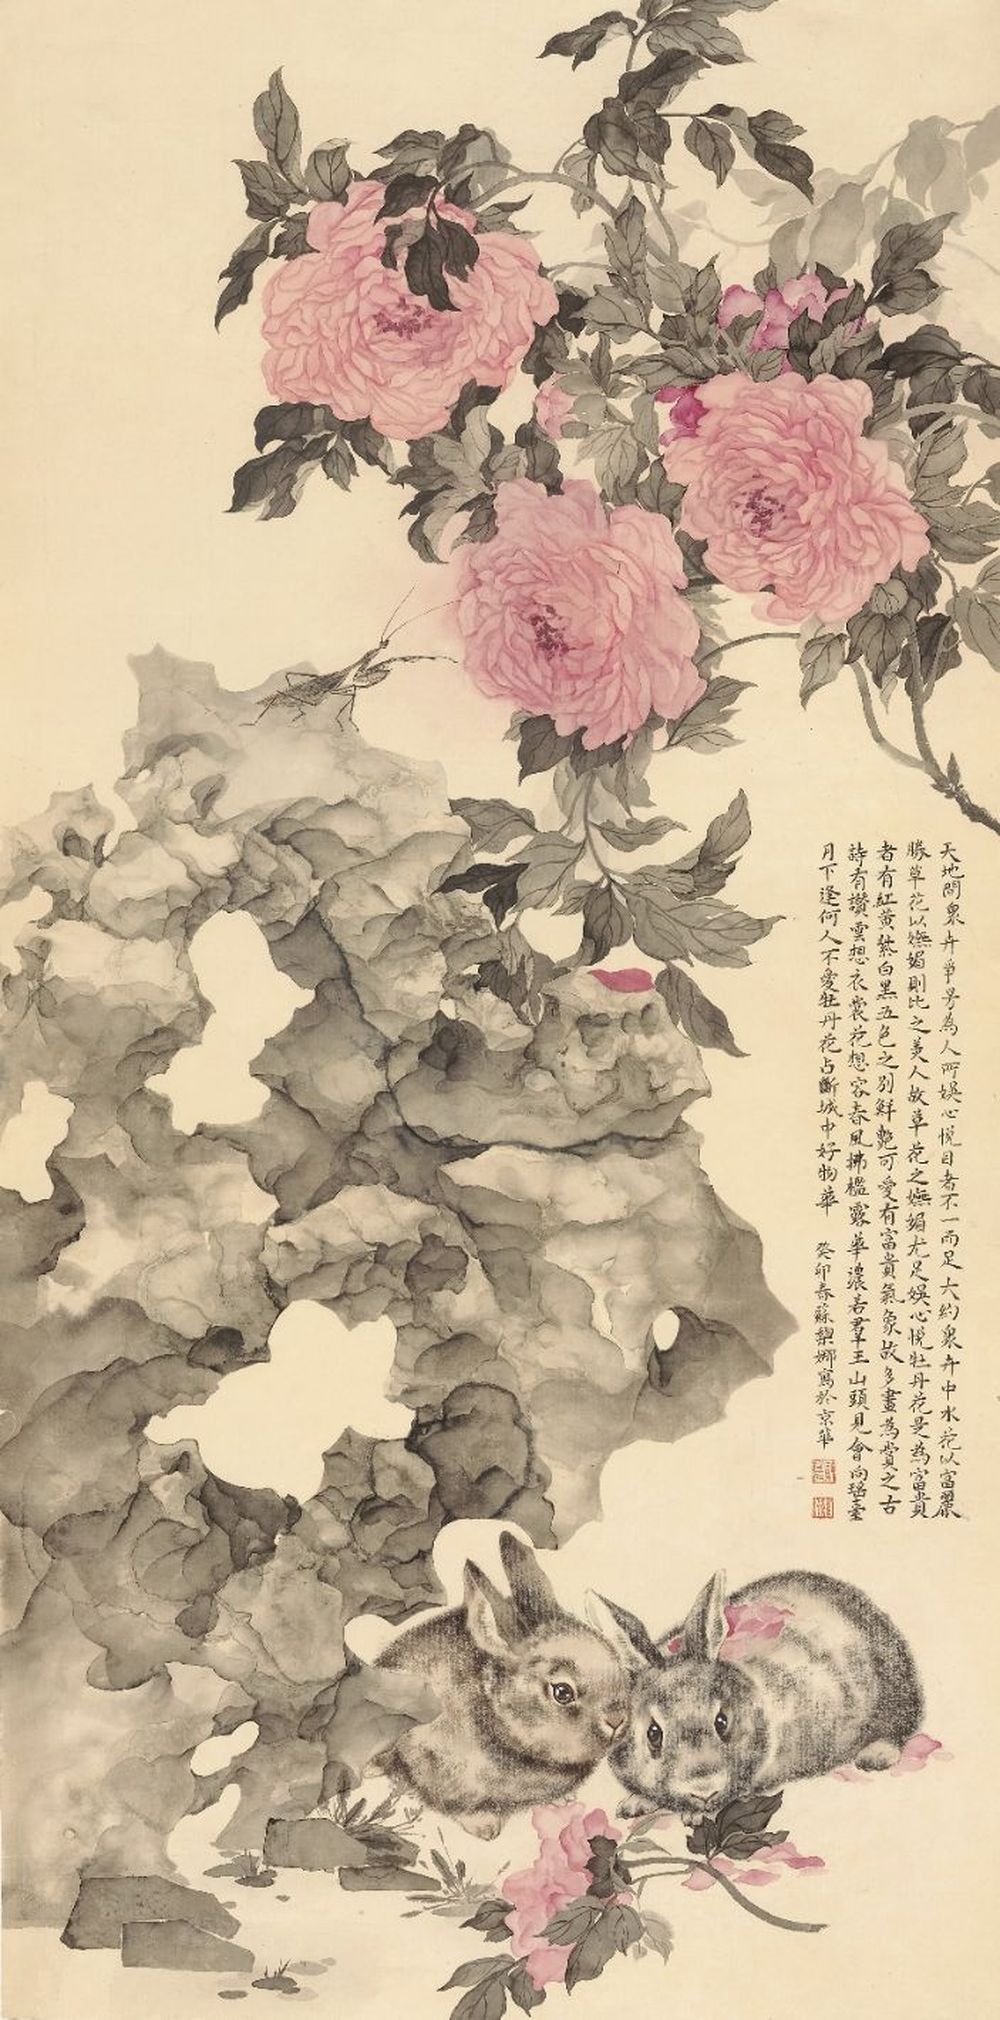 天地間衆卉爭芳為人所娛心悅目者不一而足大約衆卉中水花以富麗
勝草花以嫵媚則比之美人故草花之嫵媚尤足娛心悅牡丹花是為富貴
者有紅黃紫白黑五色之別鮮艷可愛有富貴氣象故多畫為賞之古
詩有讚雲想衣裳花想容春風拂檻露華濃若羣玉山頭見會向瑤臺
月下逢何人不愛牡丹花占斷城中好物華
癸卯春蘇梨娜寫於京華